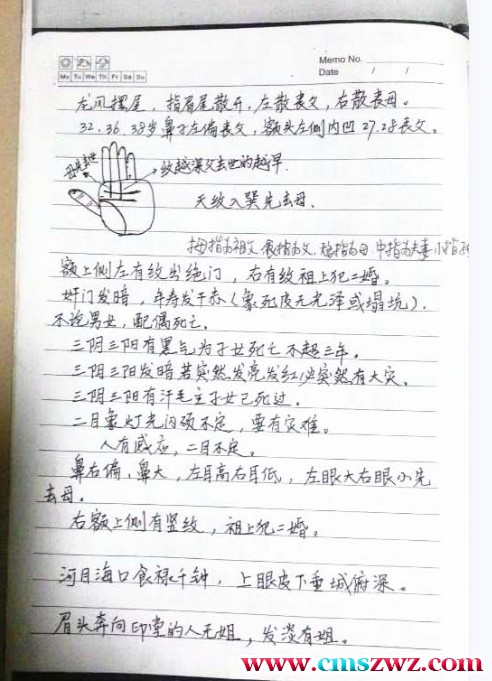 Memo No.
Mo Tu We Th Fr Sa Su
Date / /
龙凤摆尾，指眉尾散开，左散丧父，右散丧母。
32.36.38岁鼻子左偏丧父，额头左侧内凹27.28丧父。
母先去世
纹越深父去世的越早
天纹入巽先去母.
拇指为祖父 食指为父，中指为夫妻 小指
额上侧左有纹出绝门，右有纹祖上犯二婚。
奸门发暗，年寿发干赤（象死皮无光泽或塌坑）.
不论男女，配偶死亡.
三阴三阳有黑气为子女死亡不超三年。
三阴三阳发暗若突然发亮发红必突然有大灾。
三阴三阳有汗毛主子女已死过.
二目象灯光闪烁不定，要有灾难。
人有感应，二目不定。
鼻右偏，鼻大，左耳高右耳低，左眼大右眼小先
去母.
右额上侧有竖纹，祖上犯二婚。
河目海口食禄千钟，上眼皮下垂城府深。
眉头奔向印堂的人无姐，发淡有姐。
www.cmszwz.com